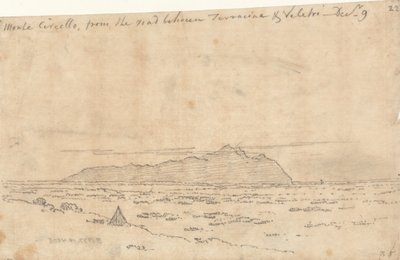 Monte Circello, from the road between Terracina & Veletri - Decr. 9
22